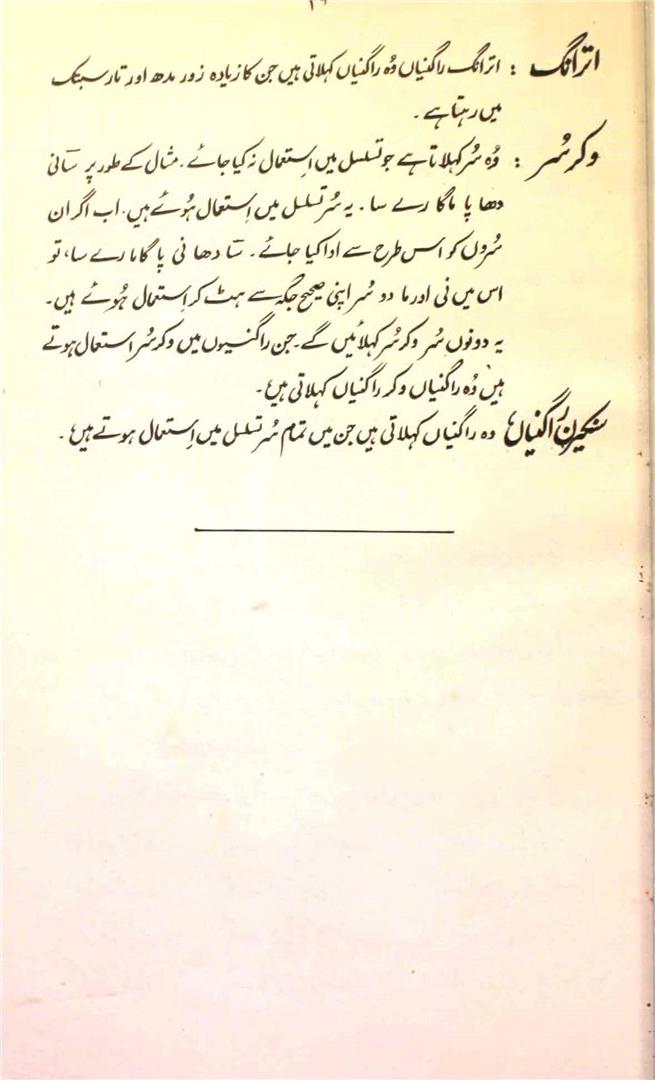 اترانگ : اترانگ راگنیاں وُہ راگنیاں کہلاتی ہیں جن کا زیادہ زور مدھ اور تار سپتک
میں رہتا ہے۔
وکر سُر : وُہ سُر کہلاتا ہے جو تسلسل میں اِستعمال نہ کیا جائے۔ مثال کے طور پر سآ نی
دھا پا ما گا رے سا۔ یہ سُر تسلسل میں اِستعمال ہُوئے ہیں۔ اب اگر ان
سُروں کو اس طرح سے ادا کیا جائے۔ سآ دھا نی پا گا ما رے سا، تو
اس میں نی اور ما دو سُر اپنی صحیح جگہ سے ہٹ کر اِستعمال ہُوئے ہیں۔
یہ دونوں سُر وکر سُر کہلائیں گے۔ جن راگنیوں میں وکر سُر استعمال ہوتے
ہیں وُہ راگنیاں وکر راگنیاں کہلاتی ہیں۔
راگنیاں وہ راگنیاں کہلاتی ہیں جن میں تمام سُر تسلسل میں اِستعمال ہوتے ہیں۔